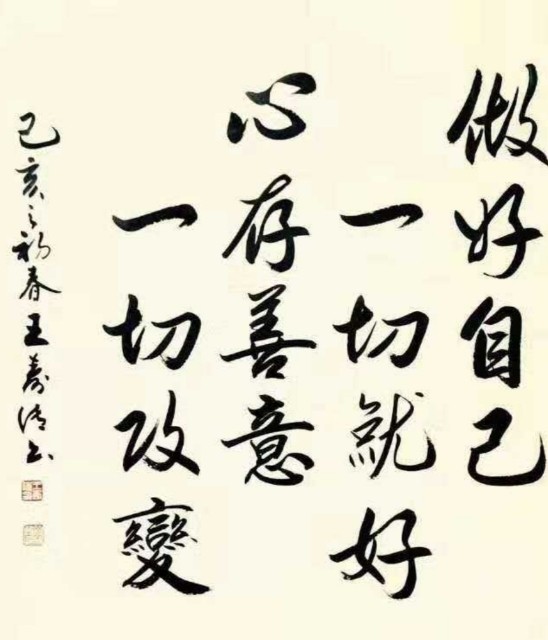 做好自己
一切就好
心存善意
一切改變
己亥之初春王壽清书